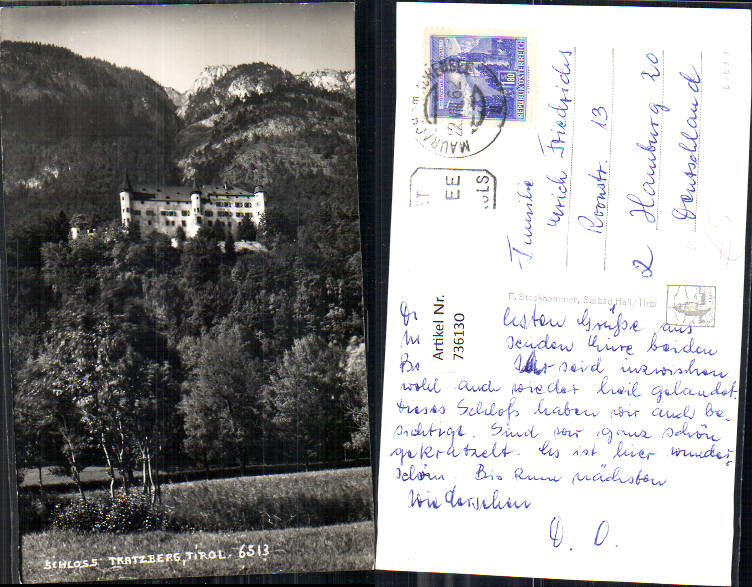 SCHLOSS TRATZBERG, TIROL. 6513
REPUBLIK ÖSTERREICH
1.80
MAURACH am ACHENSEE
22. VIII. 62
EE
Familie
Erich Friedrichs
Roonstr. 13
2 Hamburg 20
Deutschland
E. Stockhammer, Solbad Hall/Tirol
Artikel Nr.
736130
esten Grüße aus
senden Eure beiden
Ihr seid inzwischen
wohl auch wieder heil gelandet.
Dieses Schloß haben wir auch be-
sichtigt. Sind wir ganz schön
gekraxelt. Es ist hier wunder-
schön. Bis zum nächsten
Wiedersehen
D. O.